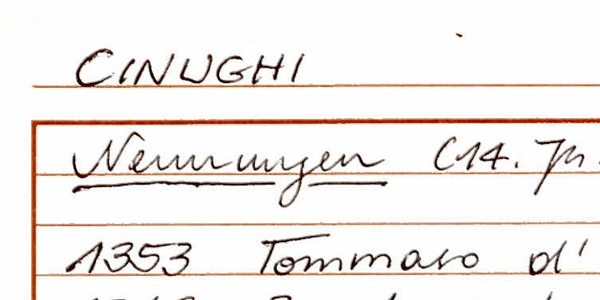 CINUGHI
Nennungen (14. Jh.
1353 Tommaso d'